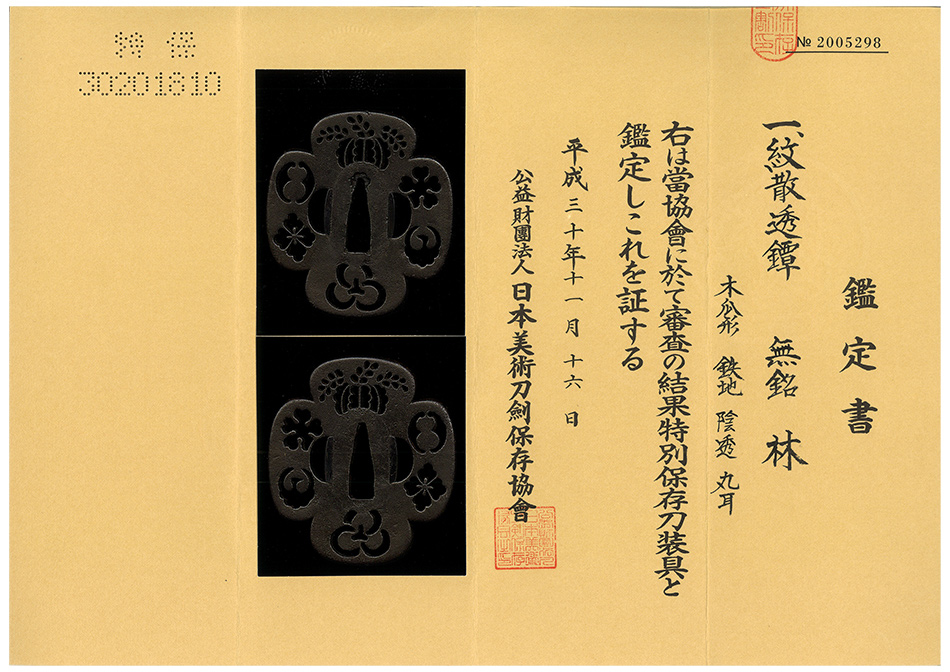 № 2005298
鑑定書
一、紋散透鐔 無銘 林
木瓜形 鉄地 陰透 丸耳
右は當協會に於て審査の結果特別保存刀装具と
鑑定しこれを証する
平成三十年十一月十六日
公益財團法人 日本美術刀劍保存協會
特保
30201810